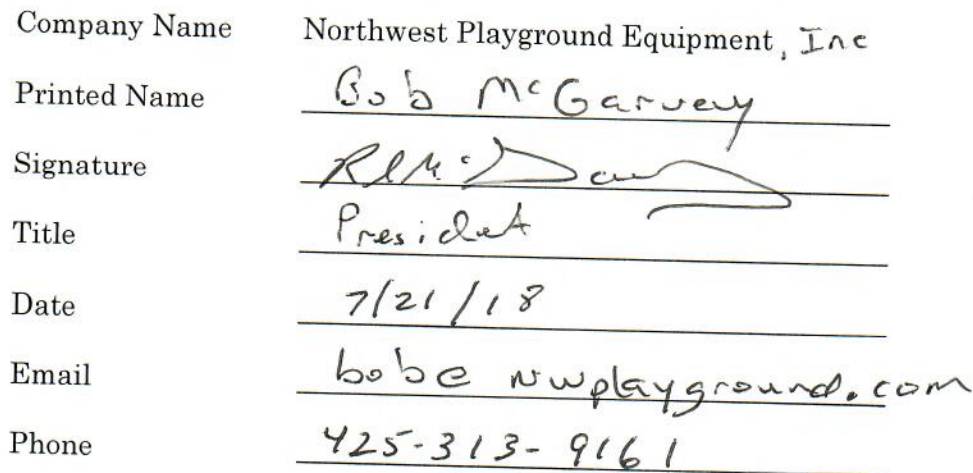 Company Name Northwest Playground Equipment, Inc
Printed Name Bob McGarvey
Signature
Title President
Date 7/21/18
Email bob@nwplayground.com
Phone 425-313-9161